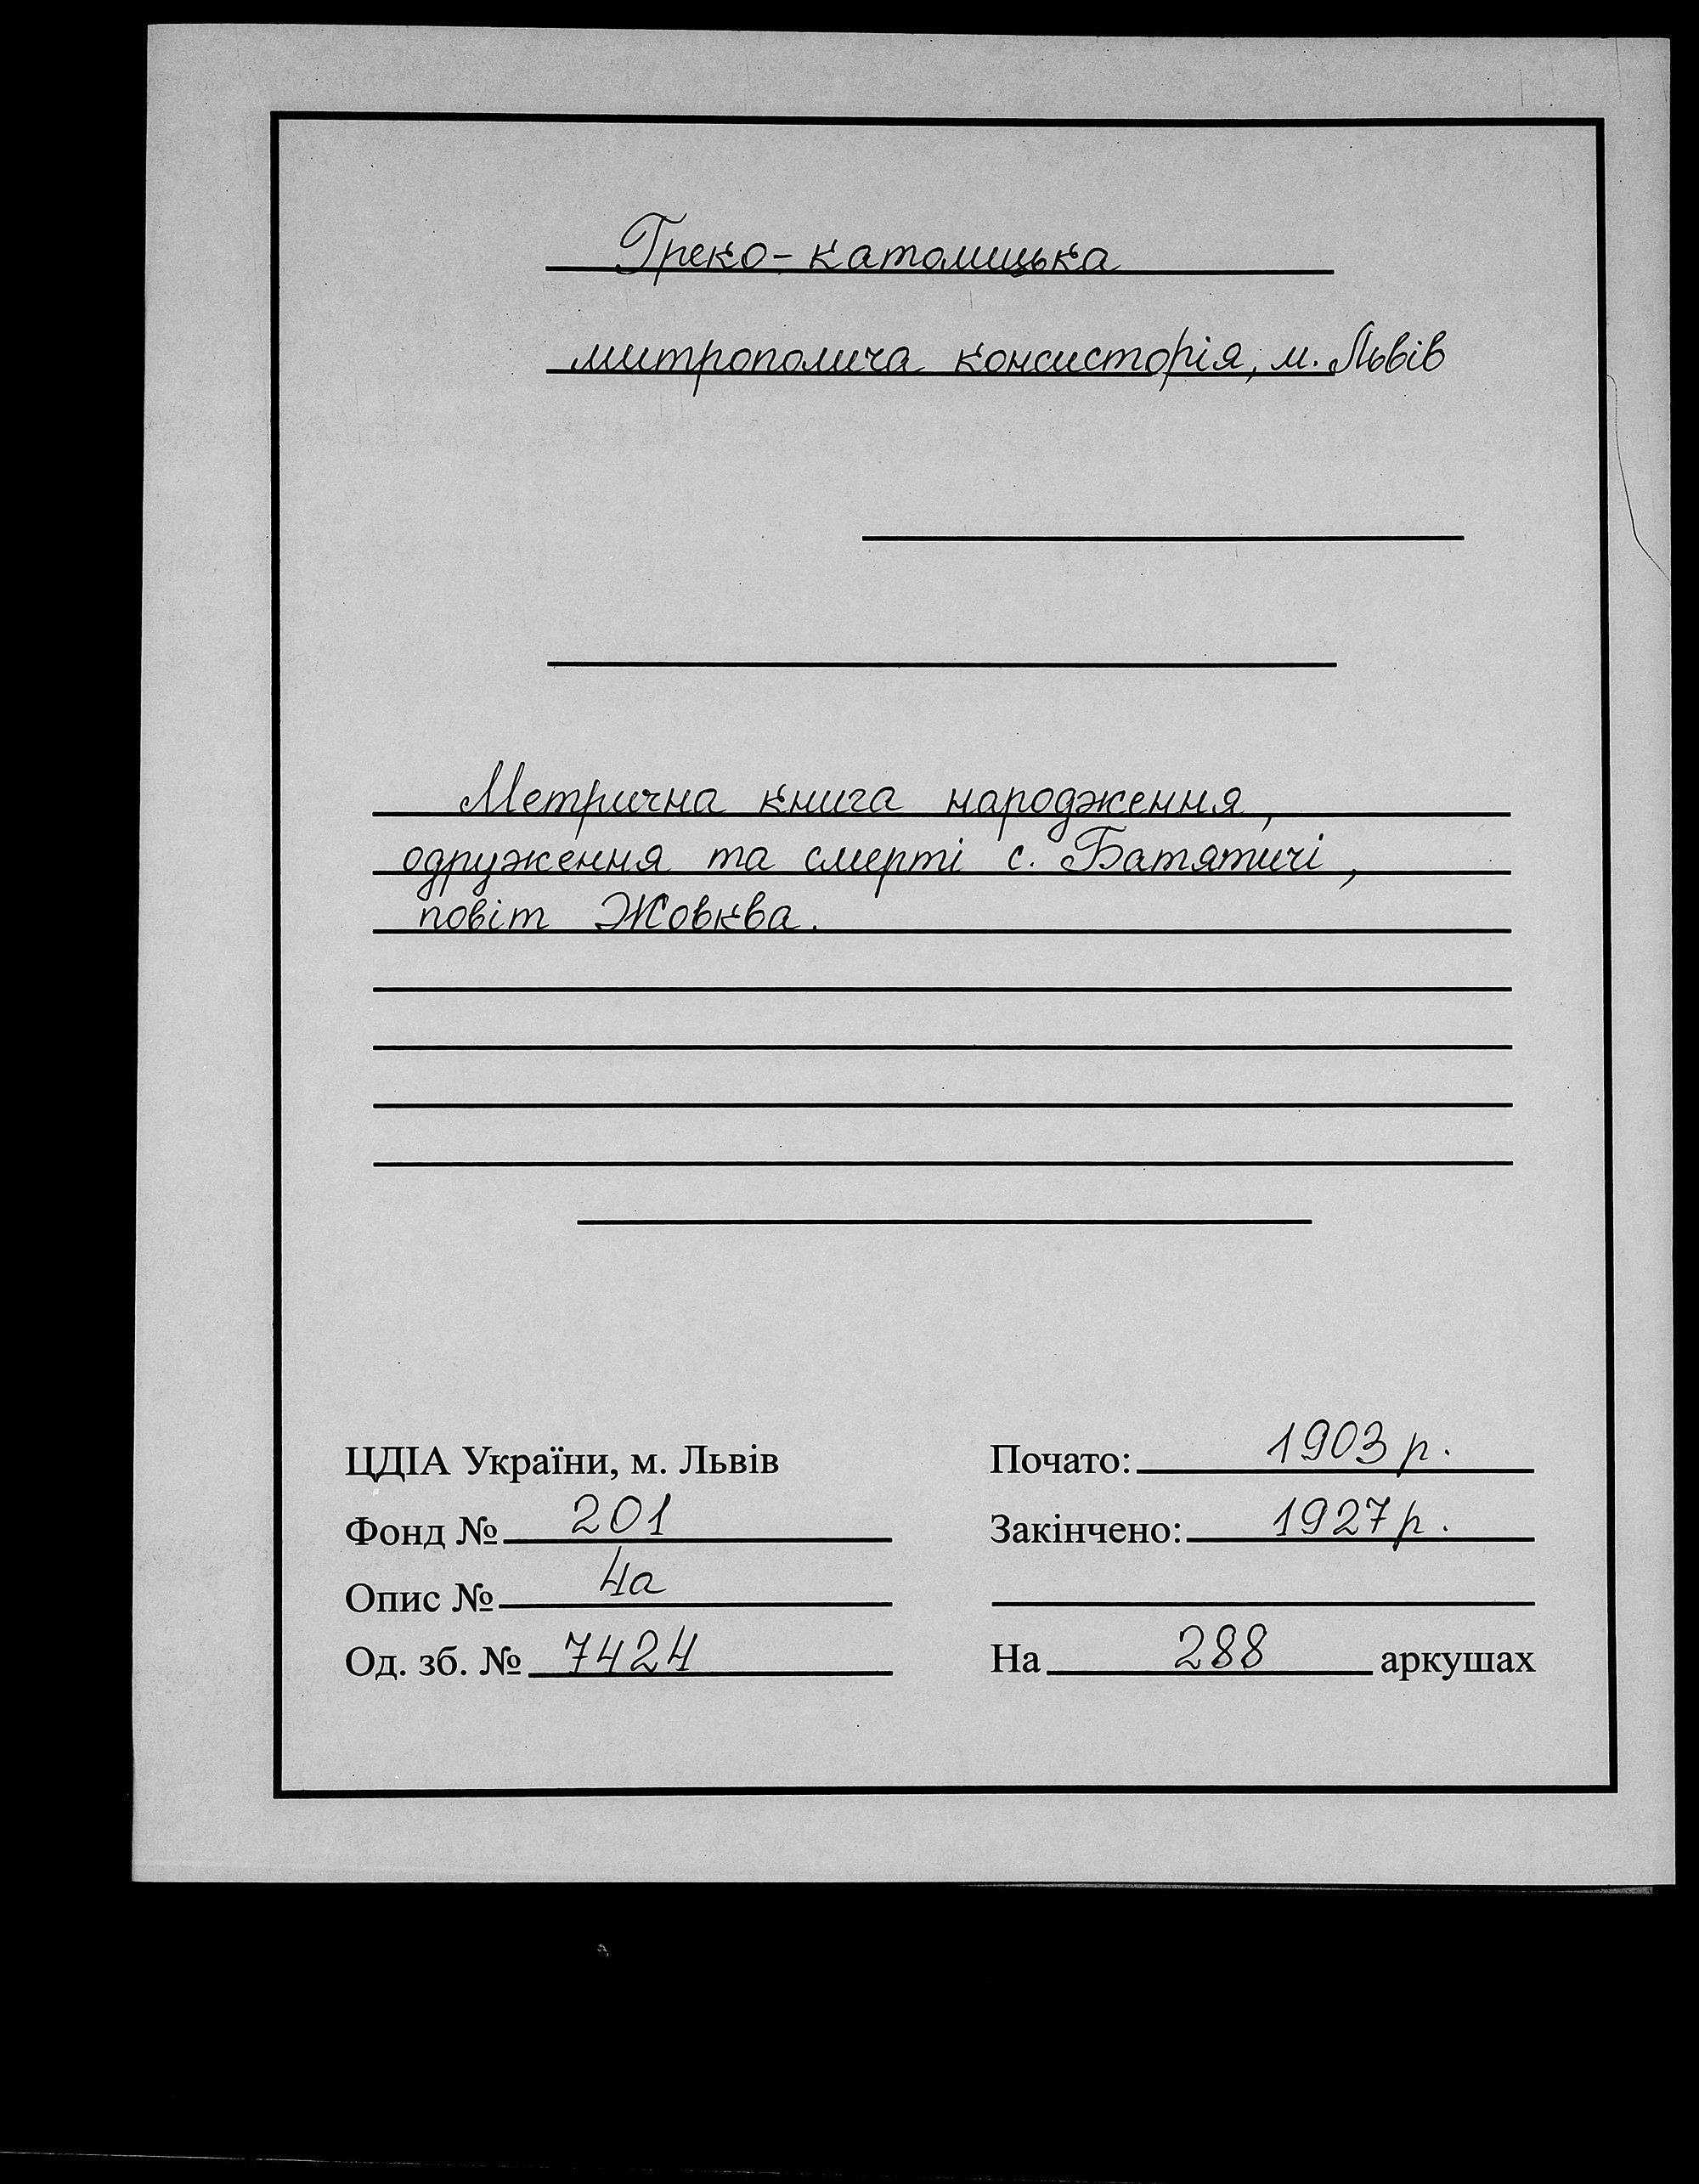 Греко-католицька
митрополича консисторія, м. Львів
Метрична книга народження,
одруження та смерті с. Батятичі,
повіт Жовква.
ЦДІА України, м. Львів
Фонд № 201
Опис № 4а
Од. зб. № 7424
Почато: 1903 р.
Закінчено: 1927 р.
На 288 аркушах